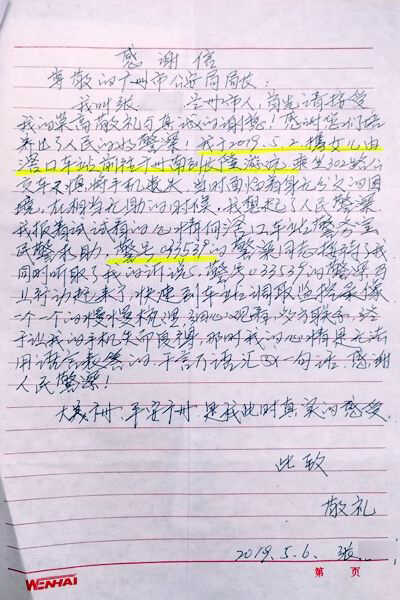 感谢信
尊敬的广州市公安局局长：
我叫张 兰州市人，首先请接受
我的崇高敬礼和真诚的谢意！感谢您们培
养出了人民的好警察！我于2019.5.2.携女儿由
滘口车站前往广州南到 旅游，乘坐302路公
交车不慎将手机丢失，当时面临着身无分文的困
境，在相当无助的时候，我想起了人民警察，
我报着试试看的心情向滘口车站警务室
民警求助，警号 的警察同志接待了我
同时听取了我的诉说。警号033539的警察马
上行动起来了，快速到车站调取监控录像
一个一个的慢慢梳理，细心观看，多方联系，终
于让我的手机失而复得，那时我的心情是无法
用语言表 的，千言万语汇 一句话，感谢
人民警察！
大美广州、平安广州 是我此时真实的感受。
此致
敬礼
2019.5.6. 张
WENHAI 第 页